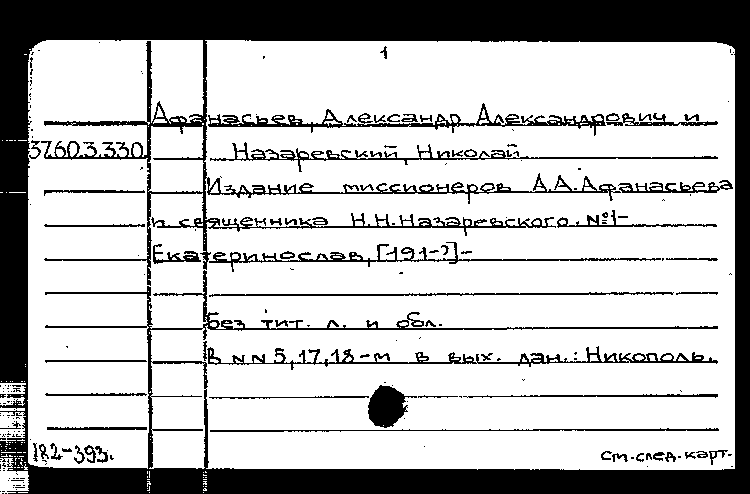 1
Афанасьев, Александр Александрович и
37.60.3.330. Назаревский, Николай
Издание миссионеров А.А.Афанасьева
и священника Н.Н.Назаревского. №1-
Екатеринослав, [191-?]-
Без тит. л. и обл.
В NN 5,17,18-м в вых. дан.: Никополь.
182-393.
См.след.карт.